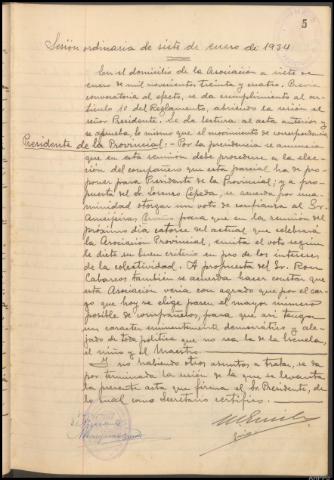 5
Sesión ordinaria de siete de enero de 1934
En el domicilio de la Asociación a siete de
enero de mil novecientos treinta y cuatro. Previa
convocatoria al efecto, se da cumplimiento al ar-
tículo 11 del Reglamento, abriendo la sesión el
señor Presidente. Se da lectura al acta anterior y
se aprueba, lo mismo que el movimiento de correspondencia
Presidente de la Provincial: - Por la presidencia se anuncia
que en esta reunión debe procederse a la elec-
ción del compañero que esta parcial ha de pro-
poner para Presidente de la Provincial; y a pro-
puesta del Sr. Lorenzo Cepeda, se acuerda por una-
nimidad otorgar un voto de confianza al Sr.
para que en la reunión del
próximo día catorce del actual que celebrará
la Asociación Provincial, emita el voto según
le dicte su buen criterio en pro de los intereses
de la colectividad. A propuesta del Sr. Roca
Cabarcos también se acuerda hacer constar que
esta Asociación vería con agrado que por el car-
go que hoy se elige pasen el mayor número
posible de compañeros, para que así tenga
un caracter eminentemente democrático y ale-
jado de toda política que no sea la de la Escuela,
el niño y el Maestro.
Y no habiendo otros asuntos a tratar, se da
por terminada la sesión de la que se levanta
la presente acta que firma el Sr. Presidente, de
lo cual como Secretario certifico.